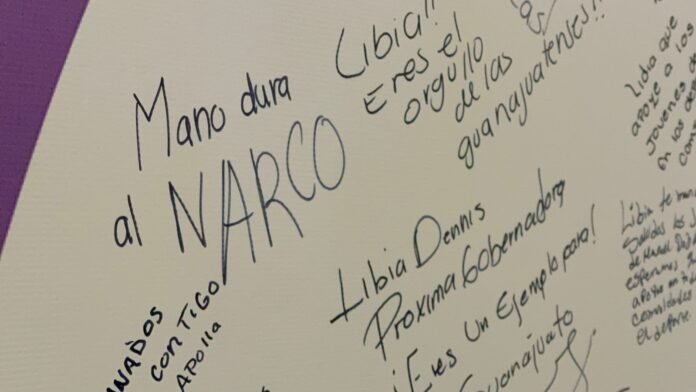 Mano dura
al NARCO
Libia!!
Eres el
orgullo
de las
guanajuatenses!!
Libia Dennis
Próxima Gobernadora
¡Eres Un Ejemplo para!
Guanajuato
CONTIGO
APOLLA
Lidia que
apoye a los
jovenes de
en los
Libia te
Saludos los
de
esperamos
apoye en
comunidades
el deporte.